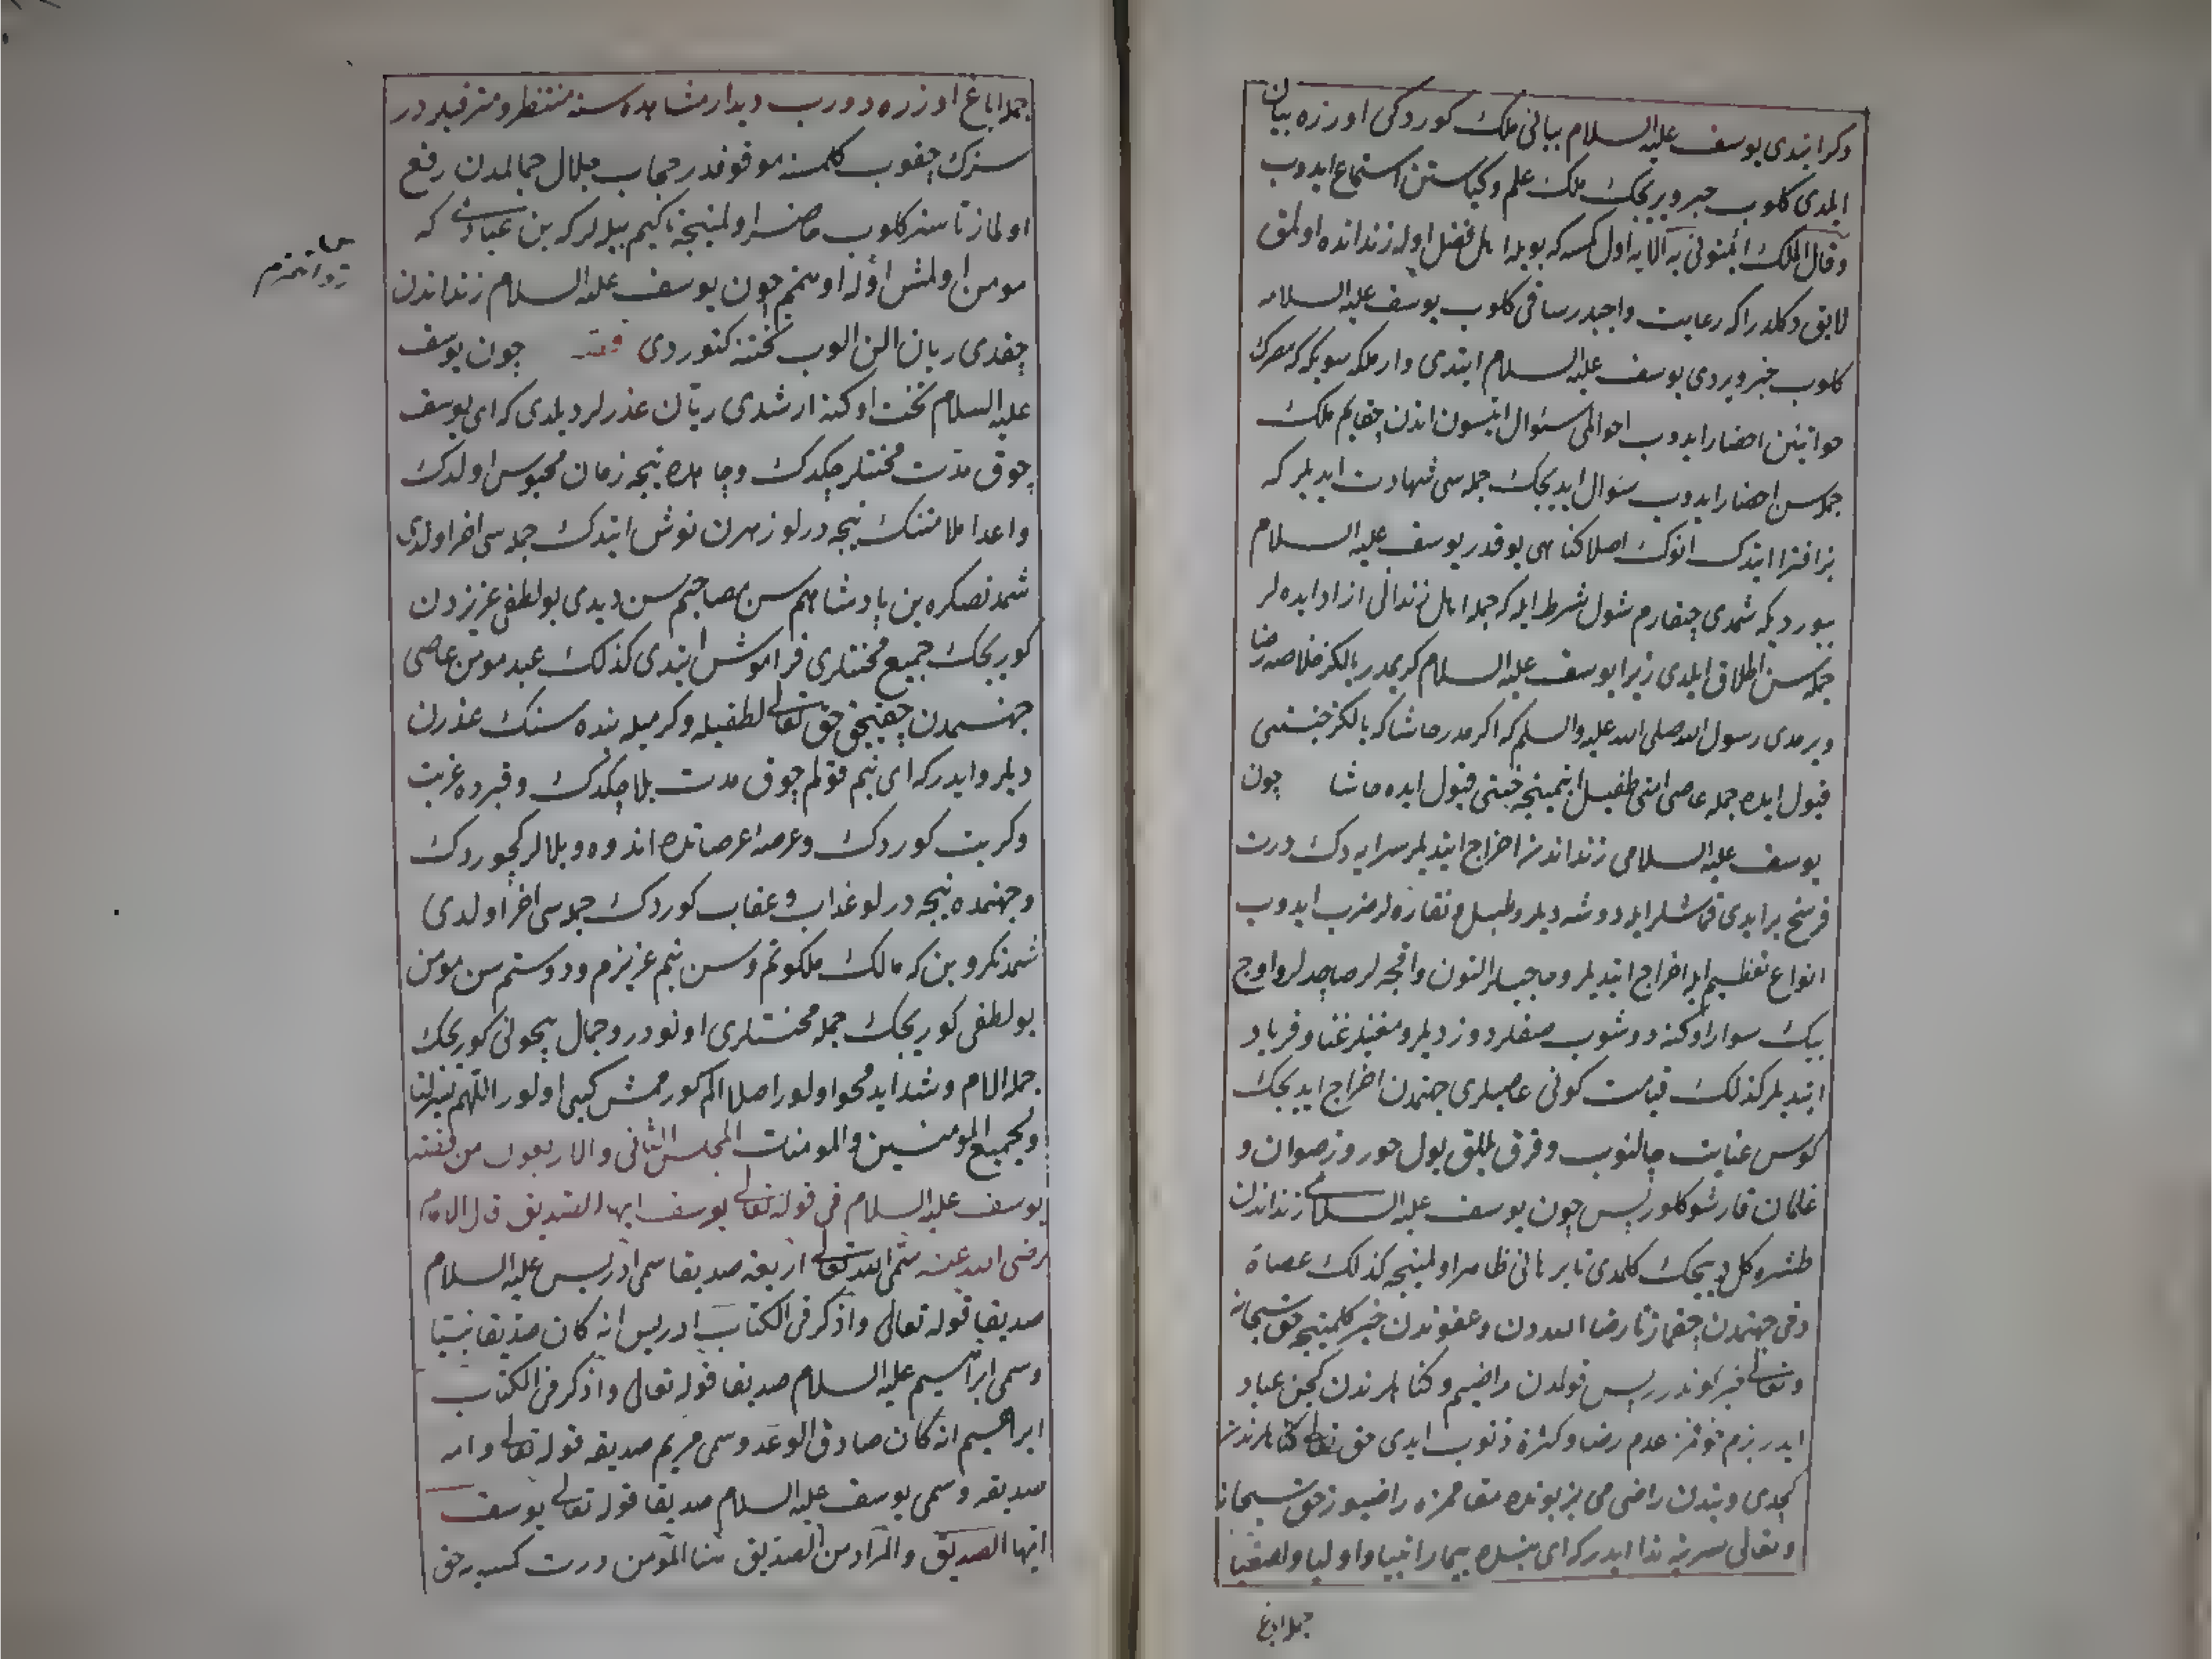 ذكر ايتدى يوسف عليه السلام بيانى ملك كوردكى اوزره بيان
ايلدى كلوب خبر ويريجك ملك علم وكياستن استماع ايدوب
وقال الملك ائتونى به الآيه اول كمسه كه بويله اهل فضل اوله زندانده اولمق
لايق دكلدر اكه رعايت واجبدر ساقى كلوب يوسف عليه السلامه
كلوب خبر ويردى يوسف عليه السلام ايتدى وار ملكه سويله كه مصرك
خواتينن احضار ايدوب احوالمى سئوال ايتسون اندن چقايم ملك
جمله سن احضار ايدوب سئوال ايديجك جمله سى شهادت ايديلر كه
بز افترا ايتدك انوك اصلا كناهى يوقدر يوسف عليه السلام
بيورديكه شمدى چقارم شول شرط ايله كه جمله اهل زندانى ازاد ايده لر
جمله سن اطلاق ايلدى زيرا يوسف عليه السلام كريمدر يالكز خلاصه رضا
ويرمدى رسول الله صلى الله عليه والسلم كه اكرمدر حاشا كه يالكز جنتى
قبول ايده جمله عاصى امتى طفيل ايتمينجه جنتى قبول ايده حاشا چون
يوسف عليه السلامى زنداندن اخراج ايتديلر سرايه دك درت
فرسخ ير ايدى قماشلر ايله دوشه ديلر وطبل و نقاره لر ضرب ايدوب
انواع تعظيم ايله اخراج ايتديلر وحاجبلر التون واقچه لر صاچديلر واوچ
بيك سوار اوكنه دوشوب صفلر دوزديلر ومغنيلر غنا وفرياد
ايتديلر كذلك قيامت كونى عاصيلرى جهنمدن اخراج ايديجك
كوس عنايت چالنوب وفرق يللق يول حور و رضوان و
غلمان قارشو كلورلر پس چون يوسف عليه السلامى زنداندن
طشره كل ديجك كلمدى تا برهانى ظاهر اولمينجه كذلك عصاة
دخى جهنمدن چقمازلر تا رضا اللهدن وعفوندن خبر كلمينجه حق سبحانه
وتعالى خبر كوندرر پس قولدن راضيم وكناهلرندن كچن عباد
ايدر بزم خوفمز عدم رضا وكثرة ذنوب ايدى حق تعالى كناهلرمزدن
كچدى وبزدن راضى مى بز بونده مقاممزه راضيوز حق سبحانه
وتعالى سرينه ندا ايدر كه اى بنده بيمار انبيا واوليا واصفيا
جمله اياغ
جمله اياغ اوزره دورب ديدار مشاهده سنه منتظر ومترقبلردر
سزك چقوب كلمسنه موقوفدر حجاب جلال جمالمدن رفع
اولماز تا سز كلوب حاضر اولمينجه تا كيم بيلر كه بن عبادى كه
مومن اولمش اوله اوتنمم چون يوسف عليه السلام زنداندن
چقدى ريان الن الوب تختنه كتوردى قصه چون يوسف
عليه السلام تخت اوكنه ارشدى ريان عذرلر ديلدى كه اى يوسف
چوق مدت محنتلر چكدك وچاهده نيجه زمان محبوس اولدك
واعدا ملامتنك نيجه درلو زهرن نوش ايتدك جمله سى اخر اولدى
شمدنصكره بن پادشاهم سن مصاحبم سن ديدى بو لطفى عزيزدن
كوريجك جميع محنتلرى فراموش ايتدى كذلك عبد مومن عاصى
جهنمدن چقيجق حق تعالى لطفيله وكرميله بنده سنك عذرن
ديلر وايدر كه اى بنم قولم چوق مدت بلا چكدك وقبرده غربت
وكربت كوردك وعرصه عرصاتده اندوه و بلالر كچوردك
وجهنمده نيجه درلو عذاب و عقاب كوردك جمله سى اخر اولدى
شمدنكرو بن كه مالك ملكوتم وسن بنم عزيزم ودوستم سن مومن
بو لطفى كوريجك جمله محنتلرى اونودر وجمال بيچونى كوريجك
جمله الام وشدايد محو اولور اصلا الم كورممش كبى اولور اللهم يسر لنا
ولجميع المومنين والمومنات المجلس الثانى والاربعون من قصه
يوسف عليه السلام فى قوله تعالى يوسف ايها الصديق قال الامام
رضى الله عنه سمى الله تعالى اربعة صديقا سمى ادريس عليه السلام
صديقا قوله تعالى واذكر فى الكتاب ادريس انه كان صديقا نبيا
وسمى ابراهيم عليه السلام صديقا قوله تعالى واذكر فى الكتاب
ابراهيم انه كان صادق الوعد وسمى مريم صديقه قوله تعالى وامه
صديقه وسمى يوسف عليه السلام صديقا قوله تعالى يوسف
ايها الصديق والمراد من الصديق هنا المومن درت كمسه يه حق